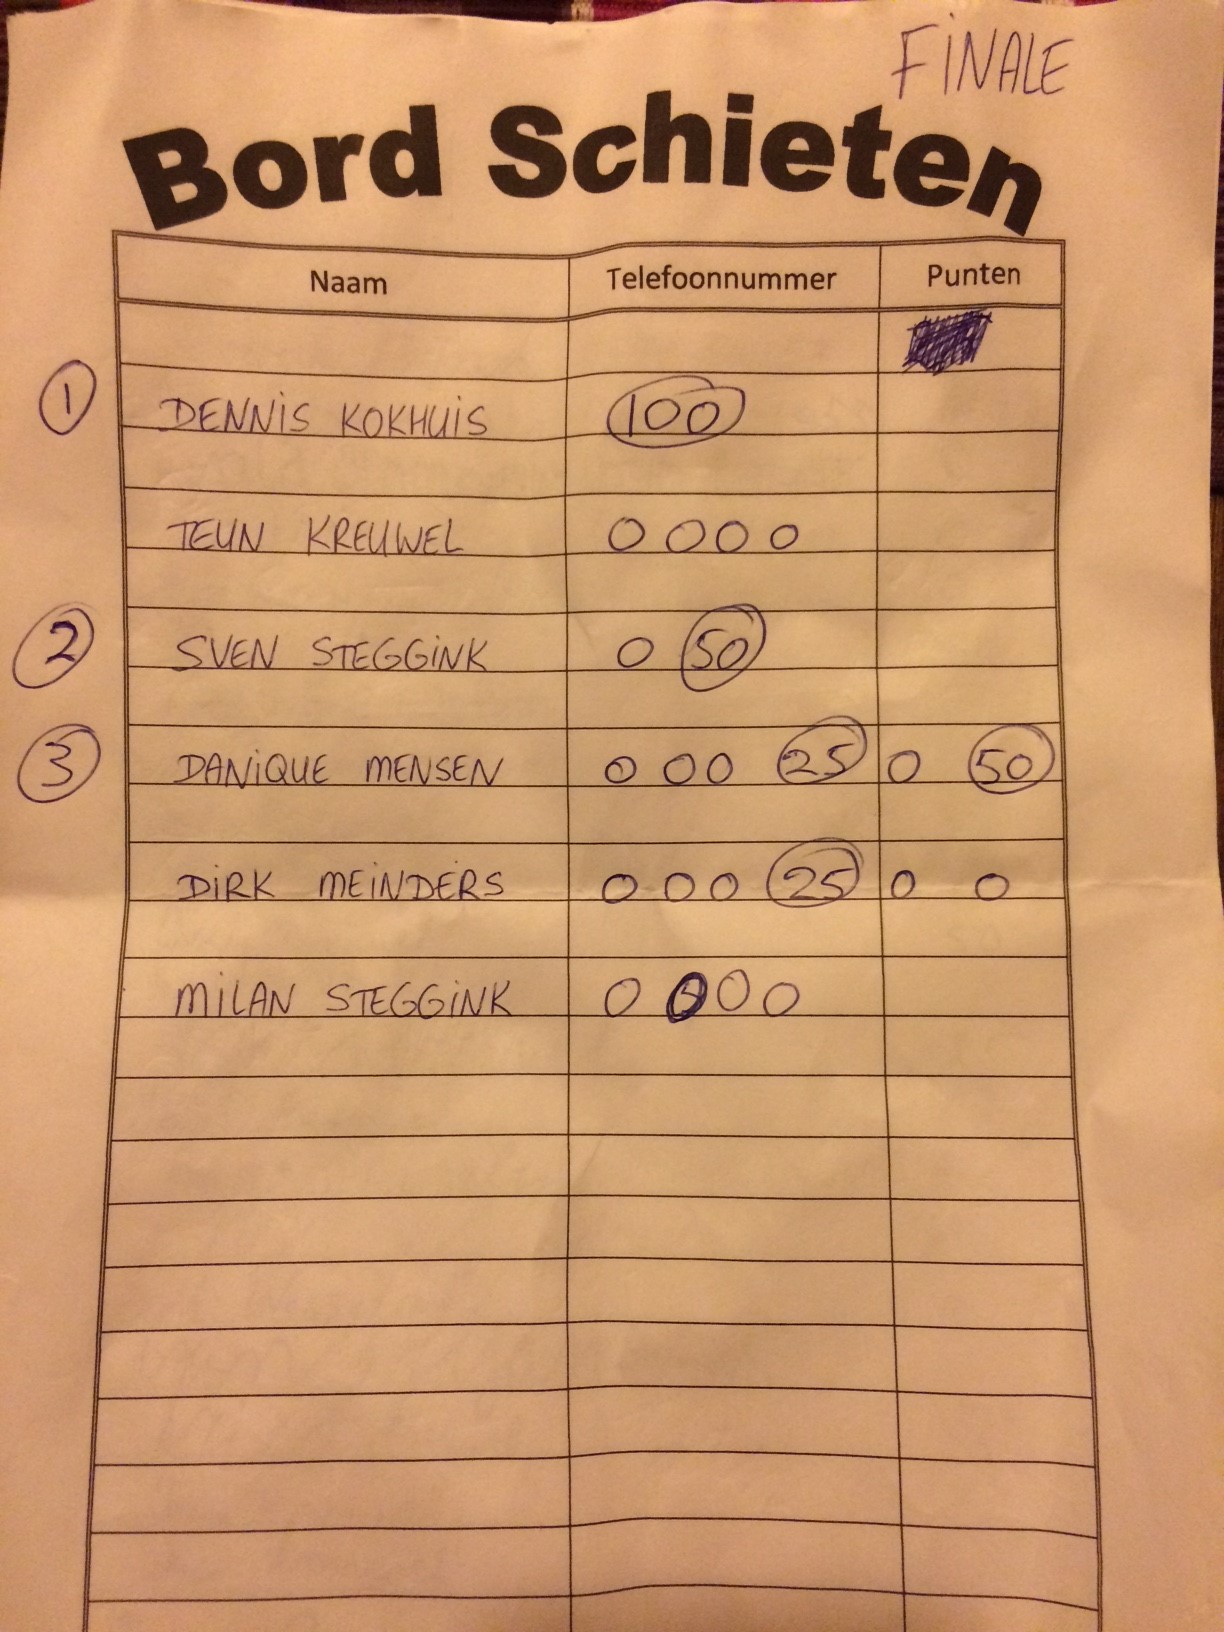 FINALE
Bord Schieten
Naam Telefoonnummer Punten
1 DENNIS KOKHUIS 100
TEUN KREUWEL 0 0 0 0
2 SVEN STEGGINK 0 50
3 DANIQUE MENSEN 0 0 0 25 0 50
DIRK MEINDERS 0 0 0 25 0 0
MILAN STEGGINK 0 0 0 0